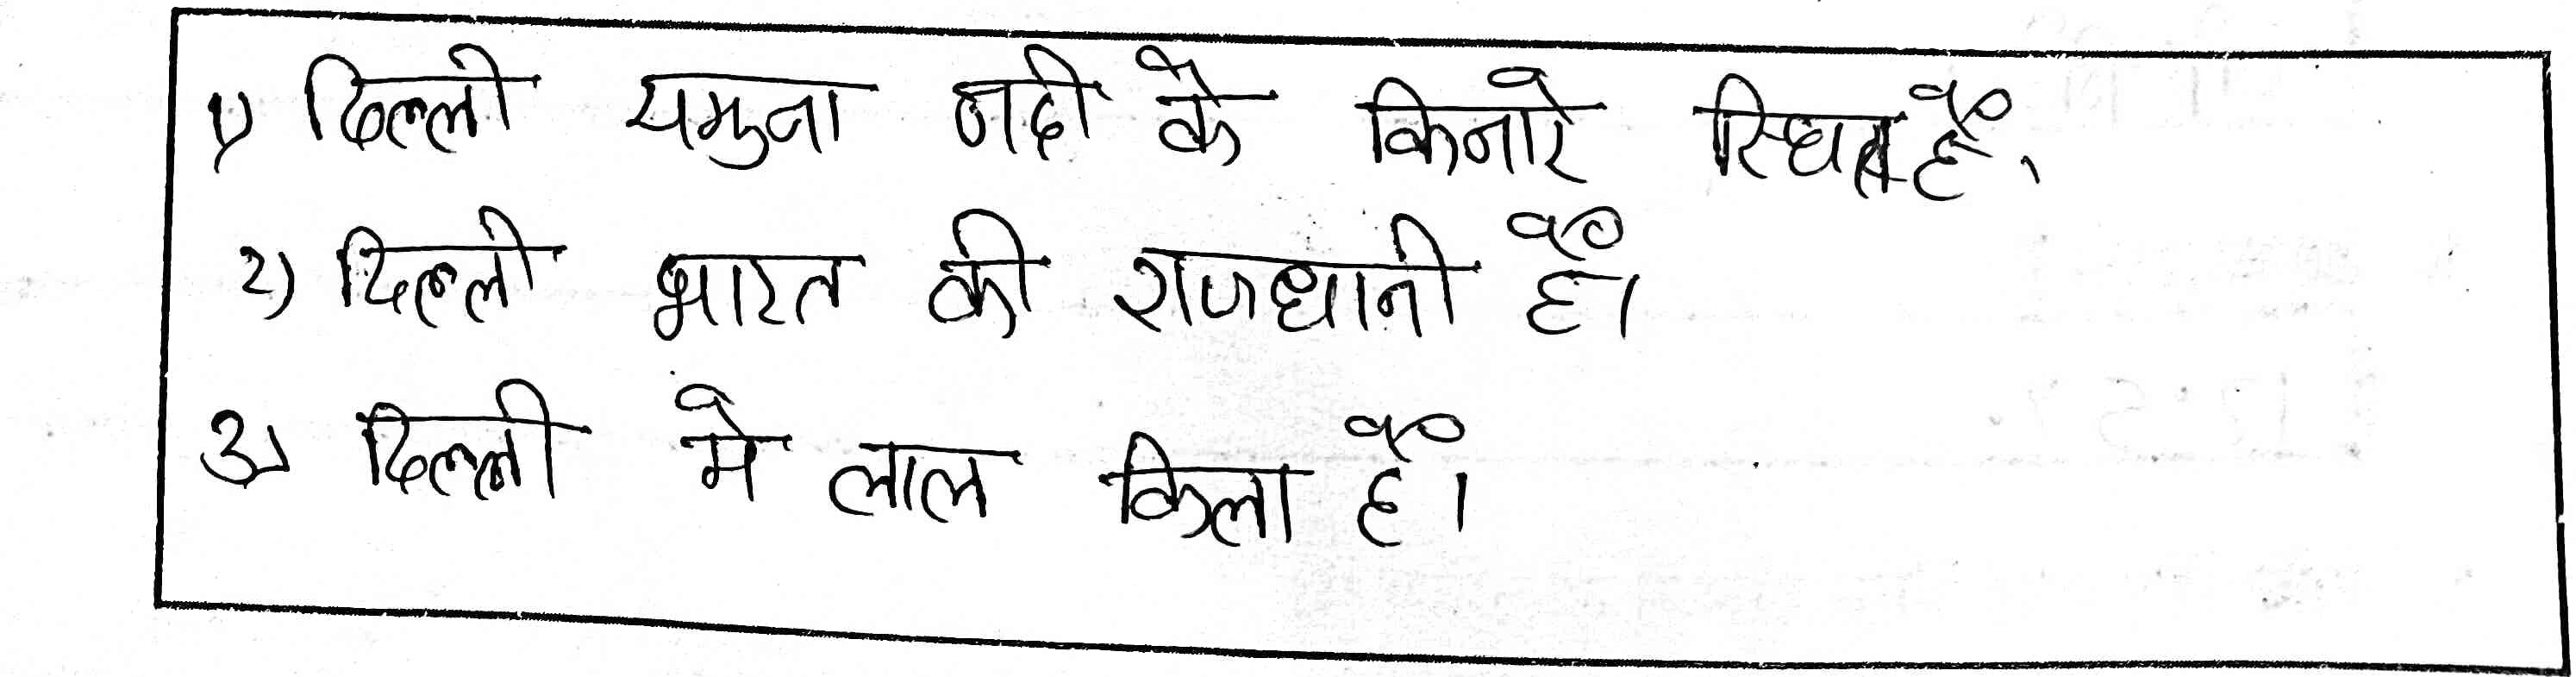 १) दिल्ली यमुना नदी के किनारे स्थित हैं।
२) दिल्ली भारत की राजधानी हैं।
३) दिल्ली मे लाल किला हैं।